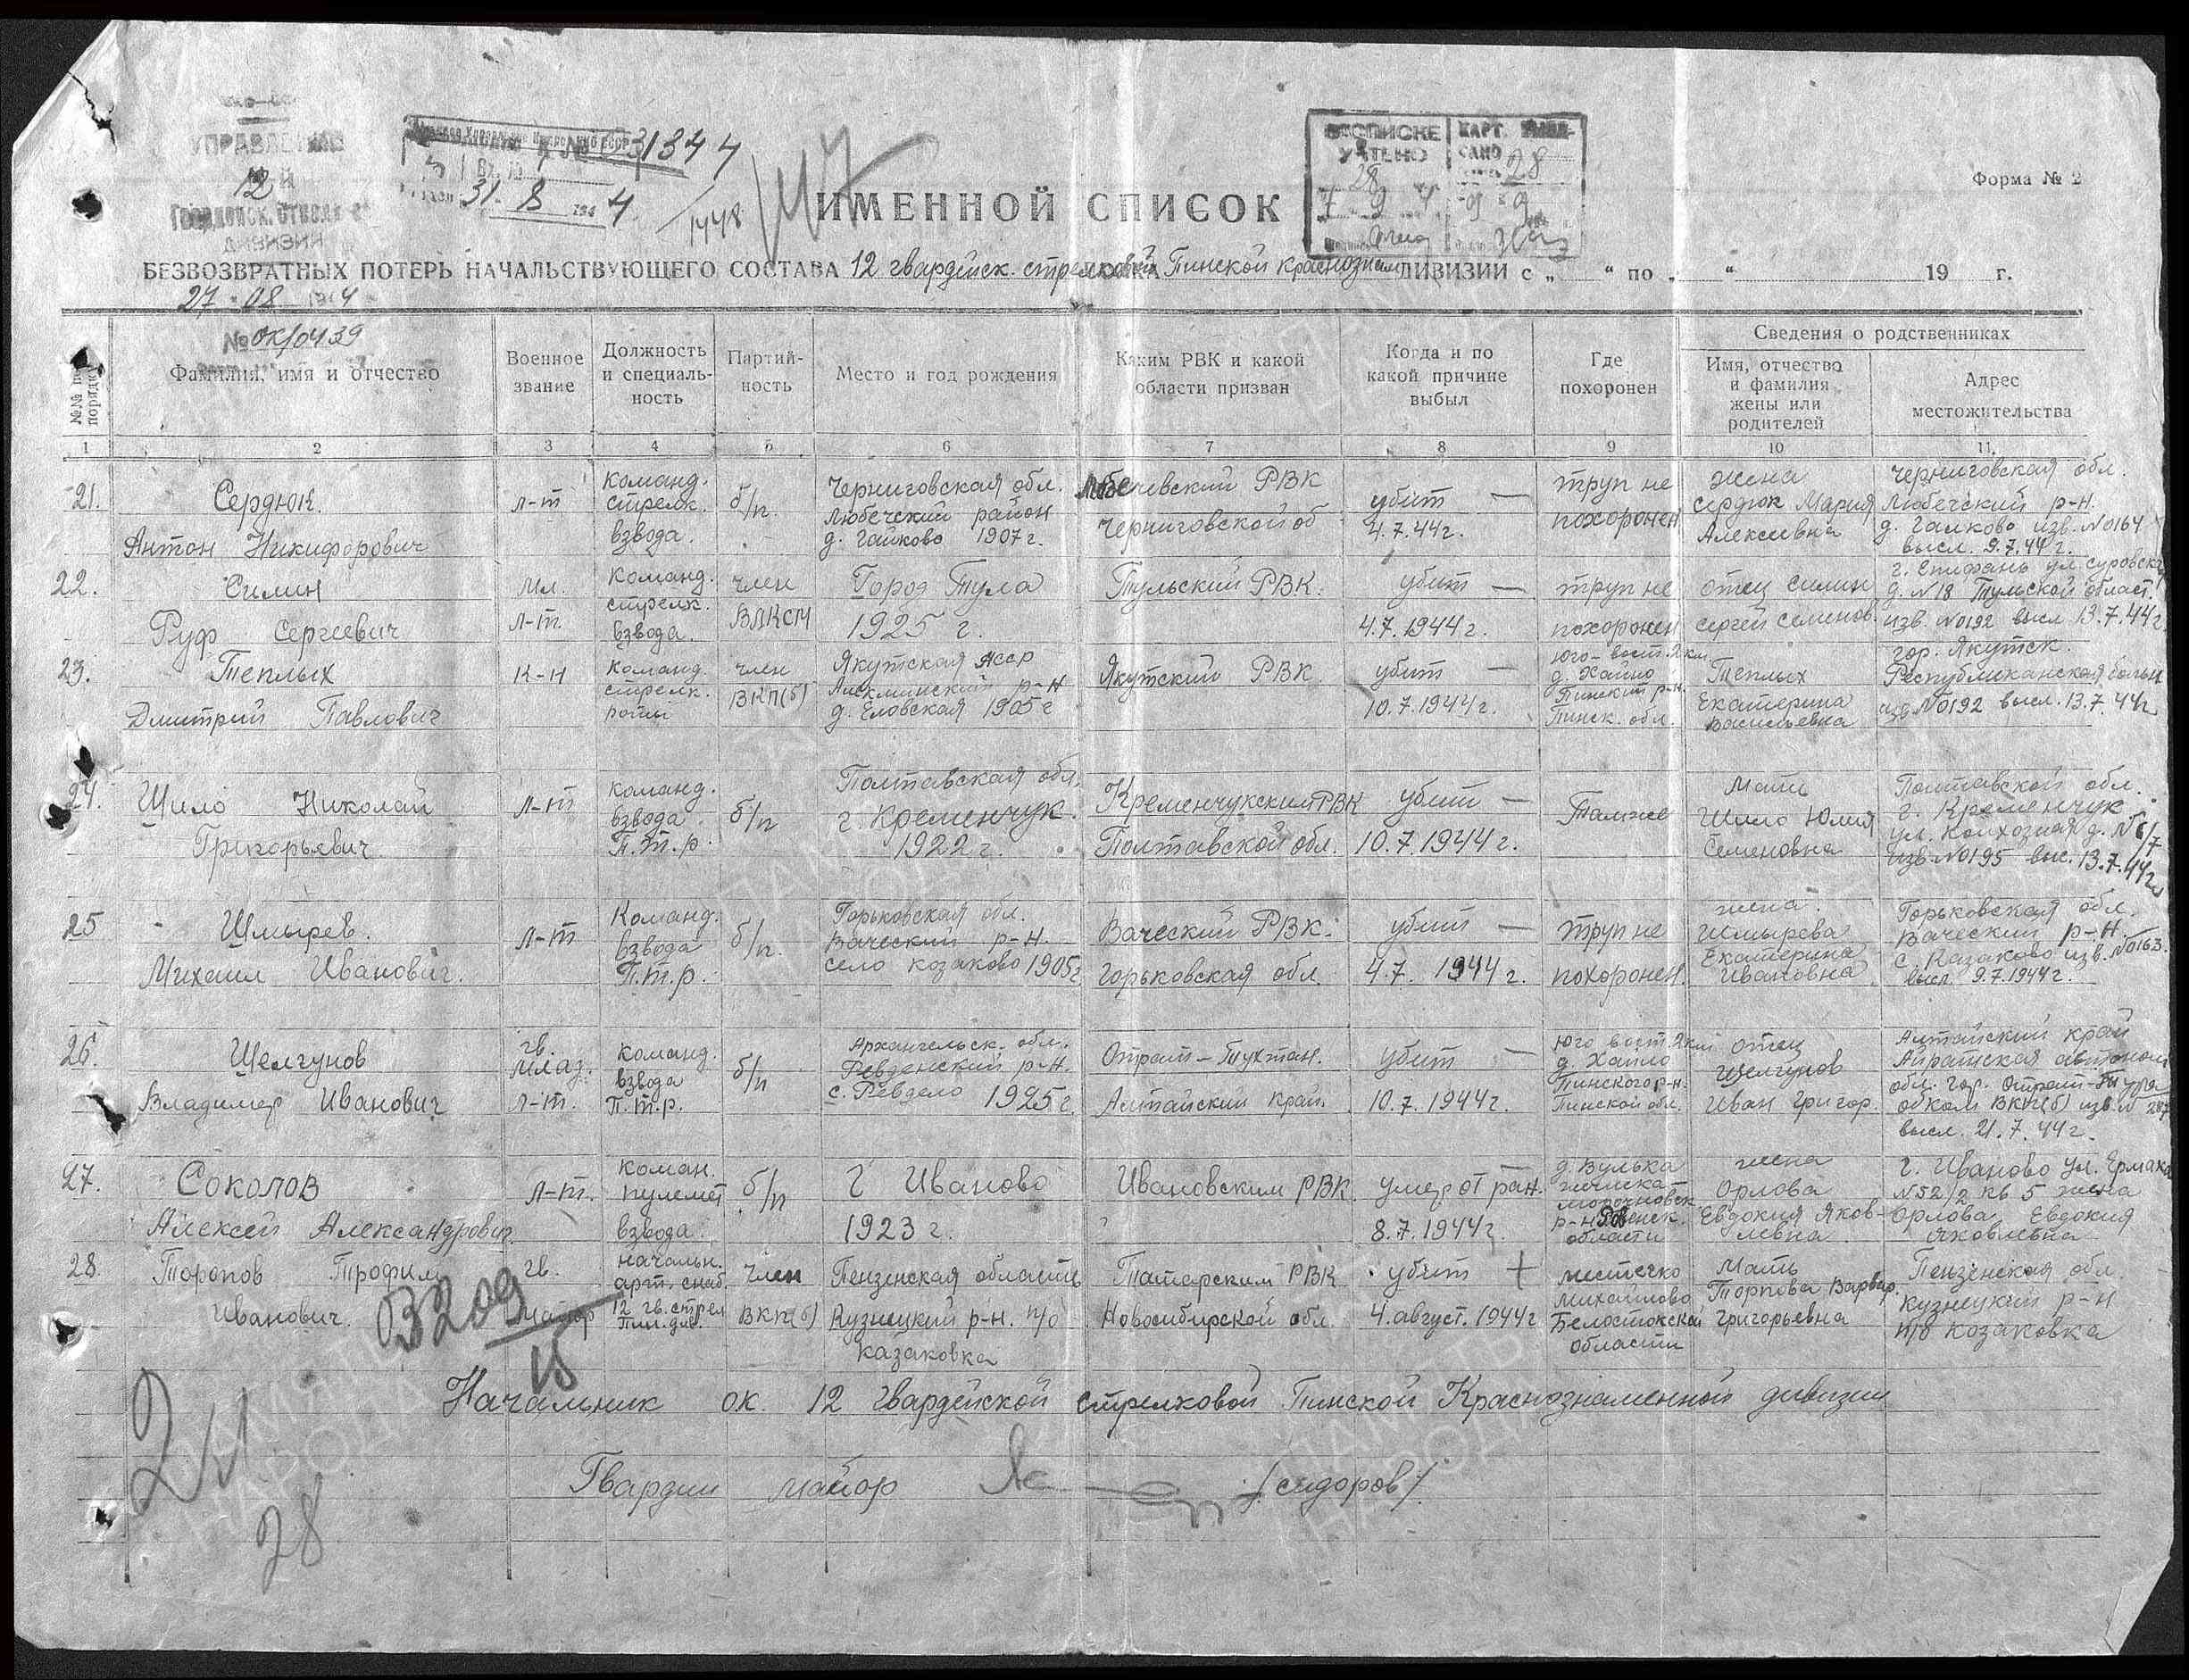 УПРАВЛЕНИЕ
12
Гвардейск. стрелк.
ДИВИЗИИ
27 08 1944
№ ОК/0439
31344
31 8 1944
1448
УЧТЕНО
28
КАРТ.
28
Форма № 2
ИМЕННОЙ СПИСОК
БЕЗВОЗВРАТНЫХ ПОТЕРЬ НАЧАЛЬСТВУЮЩЕГО СОСТАВА 12 гвардейск. стрелковой Пинской Краснознам ДИВИЗИИ с „ “ по „ “ 19 г.
№№ по порядку
Фамилия, имя и отчество
Военное звание
Должность и специаль-ность
Партий-ность
Место и год рождения
Каким РВК и какой области призван
Когда и по какой причине выбыл
Где похоронен
Сведения о родственниках
Имя, отчество и фамилия жены или родителей
Адрес местожительства
1 2 3 4 5 6 7 8 9 10 11
21. Сердюк Антон Никифорович
л-т
команд. стрелк. взвода.
б/п.
Черниговская обл. Любечский район д. Гайково 1907 г.
Любечевский РВК Черниговской об
убит — 4.7.44 г.
труп не похоронен
жена Сердюк Мария Алексеевна
Черниговская обл. Любечский р-н. д. Галково изв. №0164 высл. 9.7.44 г.
22. Силин Руф Сергеевич
мл. л-т.
Команд. стрелк. взвода.
член ВЛКСМ
Город Тула 1925 г.
Тульский РВК.
убит — 4.7.1944 г.
труп не похоронен
отец Силин Сергей Семенов.
г. Епифань ул. Суровская д. №18 Тульской област. изв. №0192 высл 13.7.44 г.
23. Теплых Дмитрий Павлович
К-н
команд. стрелк. роты
член ВКП(б)
Якутская АССР Алекминский р-н д. Еловская 1905 г
Якутский РВК.
убит — 10.7.1944 г.
юго-вост. 2 км д. Хойно Пинский р-н. Пинск. обл.
Теплых Екатерина Васильевна
гор. Якутск. Республиканская больн изв №0192 высл. 13.7.44 г
24. Шило Николай Григорьевич
л-т
команд. взвода П.т.р.
б/п
Полтавская обл. г. Кременчук. 1922 г.
Кременчукским РВК Полтавской обл.
убит — 10.7.1944 г.
Там же
Мать Шило Юлия Семеновна
Полтавской обл. г. Кременчук ул. Колхозная д. №6/7 изв №0195 выс. 13.7.44 г
25 Шмырев. Михаил Иванович.
л-т
Команд. взвода П.т.р.
б/п.
Горьковская обл. Вачеcкий р-н. село Козаково 1905 г
Вачеcкий РВК. Горьковская обл.
убит — 4.7.1944 г.
труп не похоронен.
жена. Шмырева Екатерина Ивановна
Горьковская обл. Вачеcкий р-н. с. Казаково изв. №0163. высл. 9.7.1944 г.
26. Шелгунов Владимер Иванович
гв. млад. л-т.
команд. взвода П.т.р.
б/п
Архангельск. обл. Ревденский р-н. с. Ревдело 1925 г.
Отрат-Тухтан. Алтайский край.
убит — 10.7.1944 г.
юго вост 2 км д. Хойно Пинского р-н. Пинской обл.
отец Шелгунов Иван Григор.
Алтайский край Айратская автоном обл. гор. Отрат-Тура обком ВКП(б) изв. № 287 высл. 21.7.44 г.
27. Соколов Алексей Александрович
л-т.
коман. пулемет взвода.
б/п
г Иваново 1923 г.
Ивановским РВК "
умер от ран. 8.7.1944 г.
д. Вулька р-н области
жена Орлова Евдокия Яков-левна
г. Иваново ул. Ермака №52/2 кв 5 жена Орлова Евдокия Яковлевна
28. Торопов Трофим Иванович.
гв. майор
начальн. арт. снаб. 12 гв. стрел Пин. див.
член ВКП(б)
Пензенская область Кузнецкий р-н. п/о Казаковка
Татарским РВК Новосибирской обл.
убит + 4 август. 1944 г
местечко Михайлово Белостокской области
Мать Торпова Варвар. Григорьевна
Пензенская обл. Кузнецкий р-н п/о Козаковка
В209
15
Начальник ок. 12 гвардейской стрелковой Пинской Краснознаменной дивизии
Гвардии майор /Сидоров/
28
ПАМЯТЬ НАРОДА